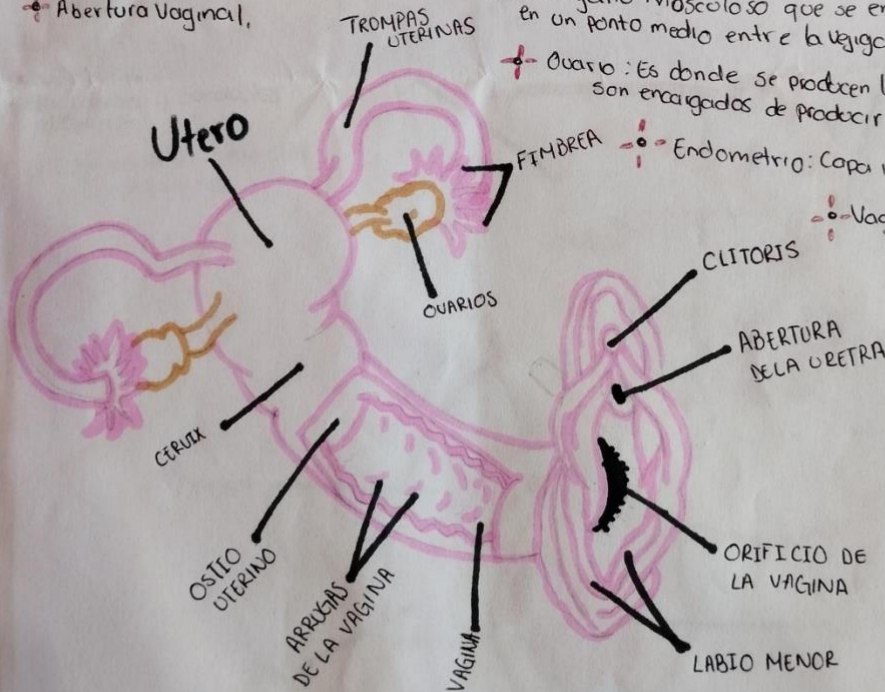 Abertura Vaginal.
Moscoloso que se
en un ponto medio entre la vejiga
Ouario: Es donde se producen
son encargados de producir
Endometrio: Capa
TROMPAS
UTERINAS
Utero
FIMBREA
OUARIOS
CLITORIS
ABERTURA
DELA URETRA
CERUIX
OSTIO
UTERINO
ARRUGAS
DE LA VAGINA
VAGINA
ORIFICIO DE
LA VAGINA
LABIO MENOR